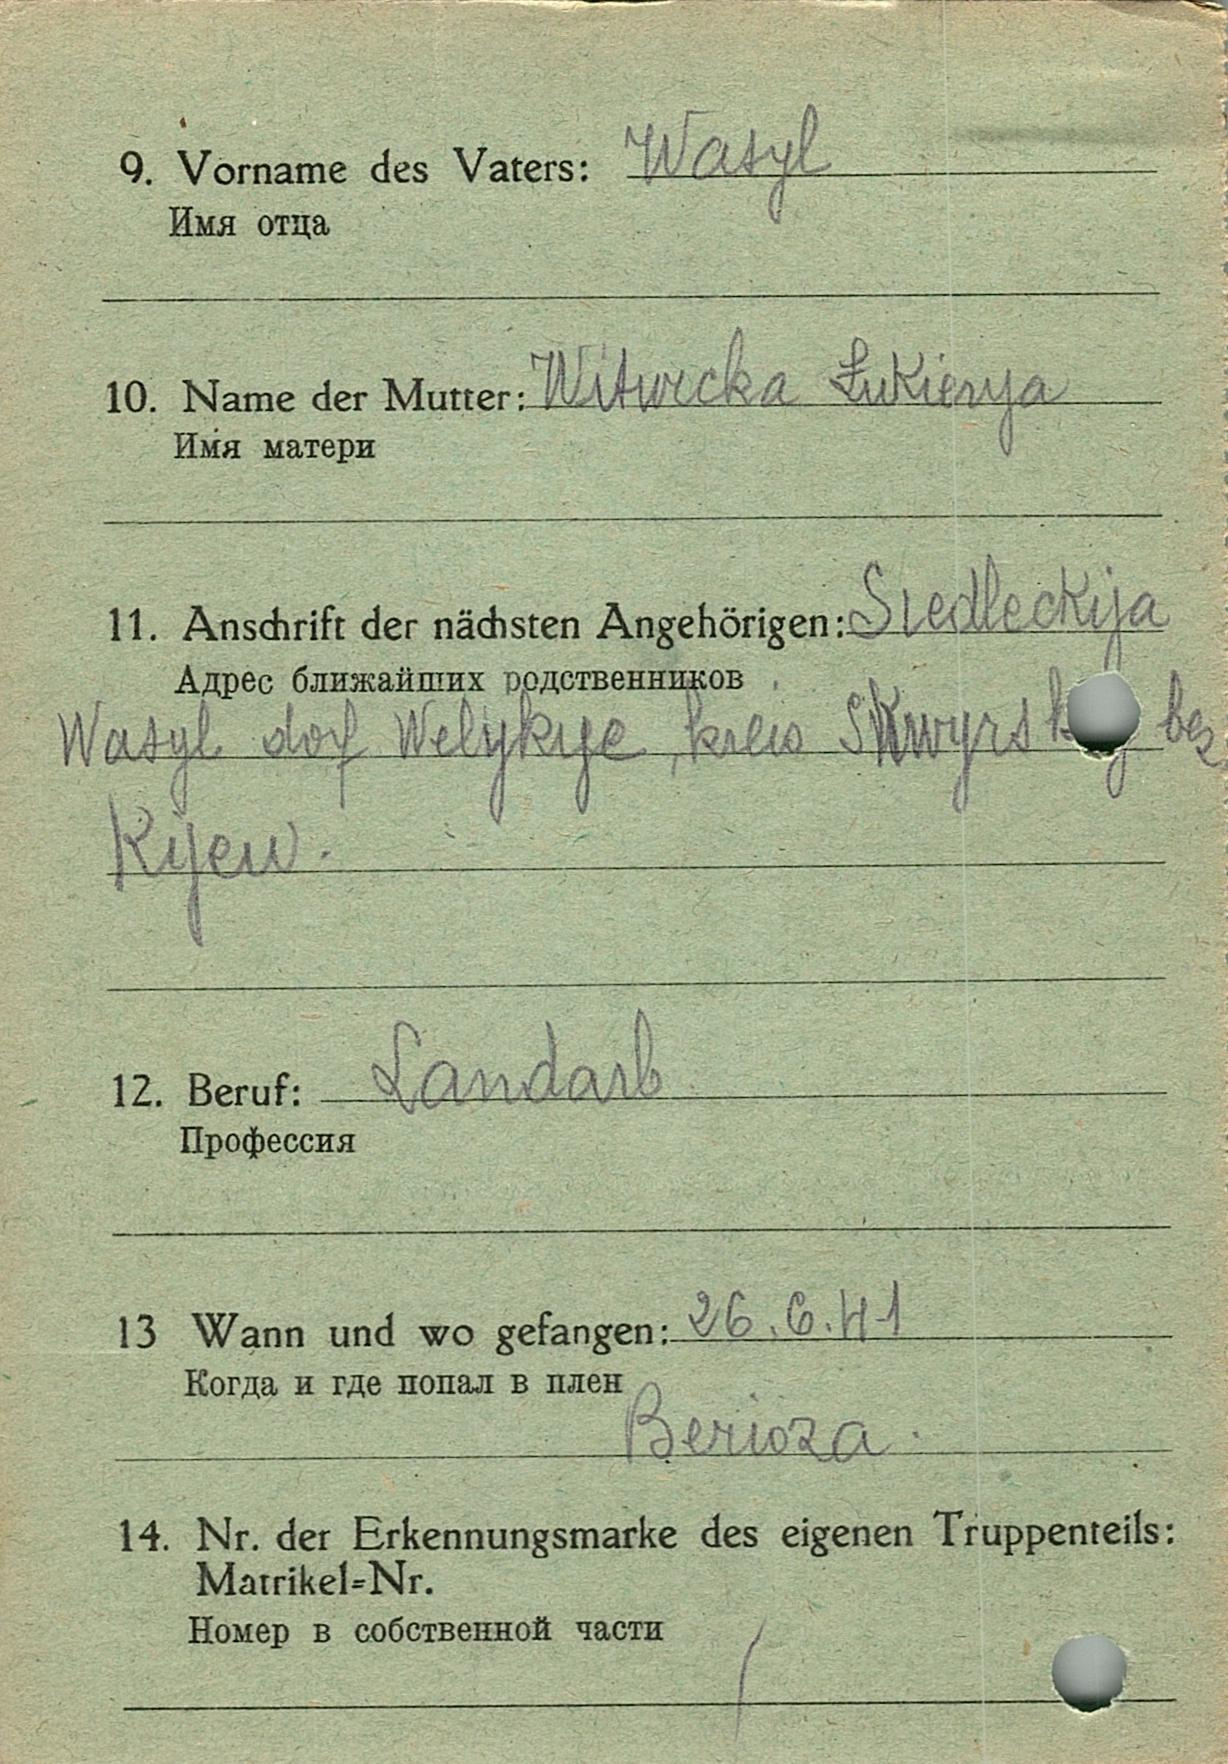 9. Vorname des Vaters: Wasyl
Имя отца
10. Name der Mutter: Witwicka Łukierya
Имя матери
11. Anschrift der nächsten Angehörigen: Siedleckija
Адрес ближайших родственников
Wasyl dorf Welykye, kreis bez
Kijew.
12. Beruf: Landarb
Профессия
13 Wann und wo gefangen: 26.6.41
Когда и где попал в плен
Berioza.
14. Nr. der Erkennungsmarke des eigenen Truppenteils:
Matrikel=Nr.
Номер в собственной части
/